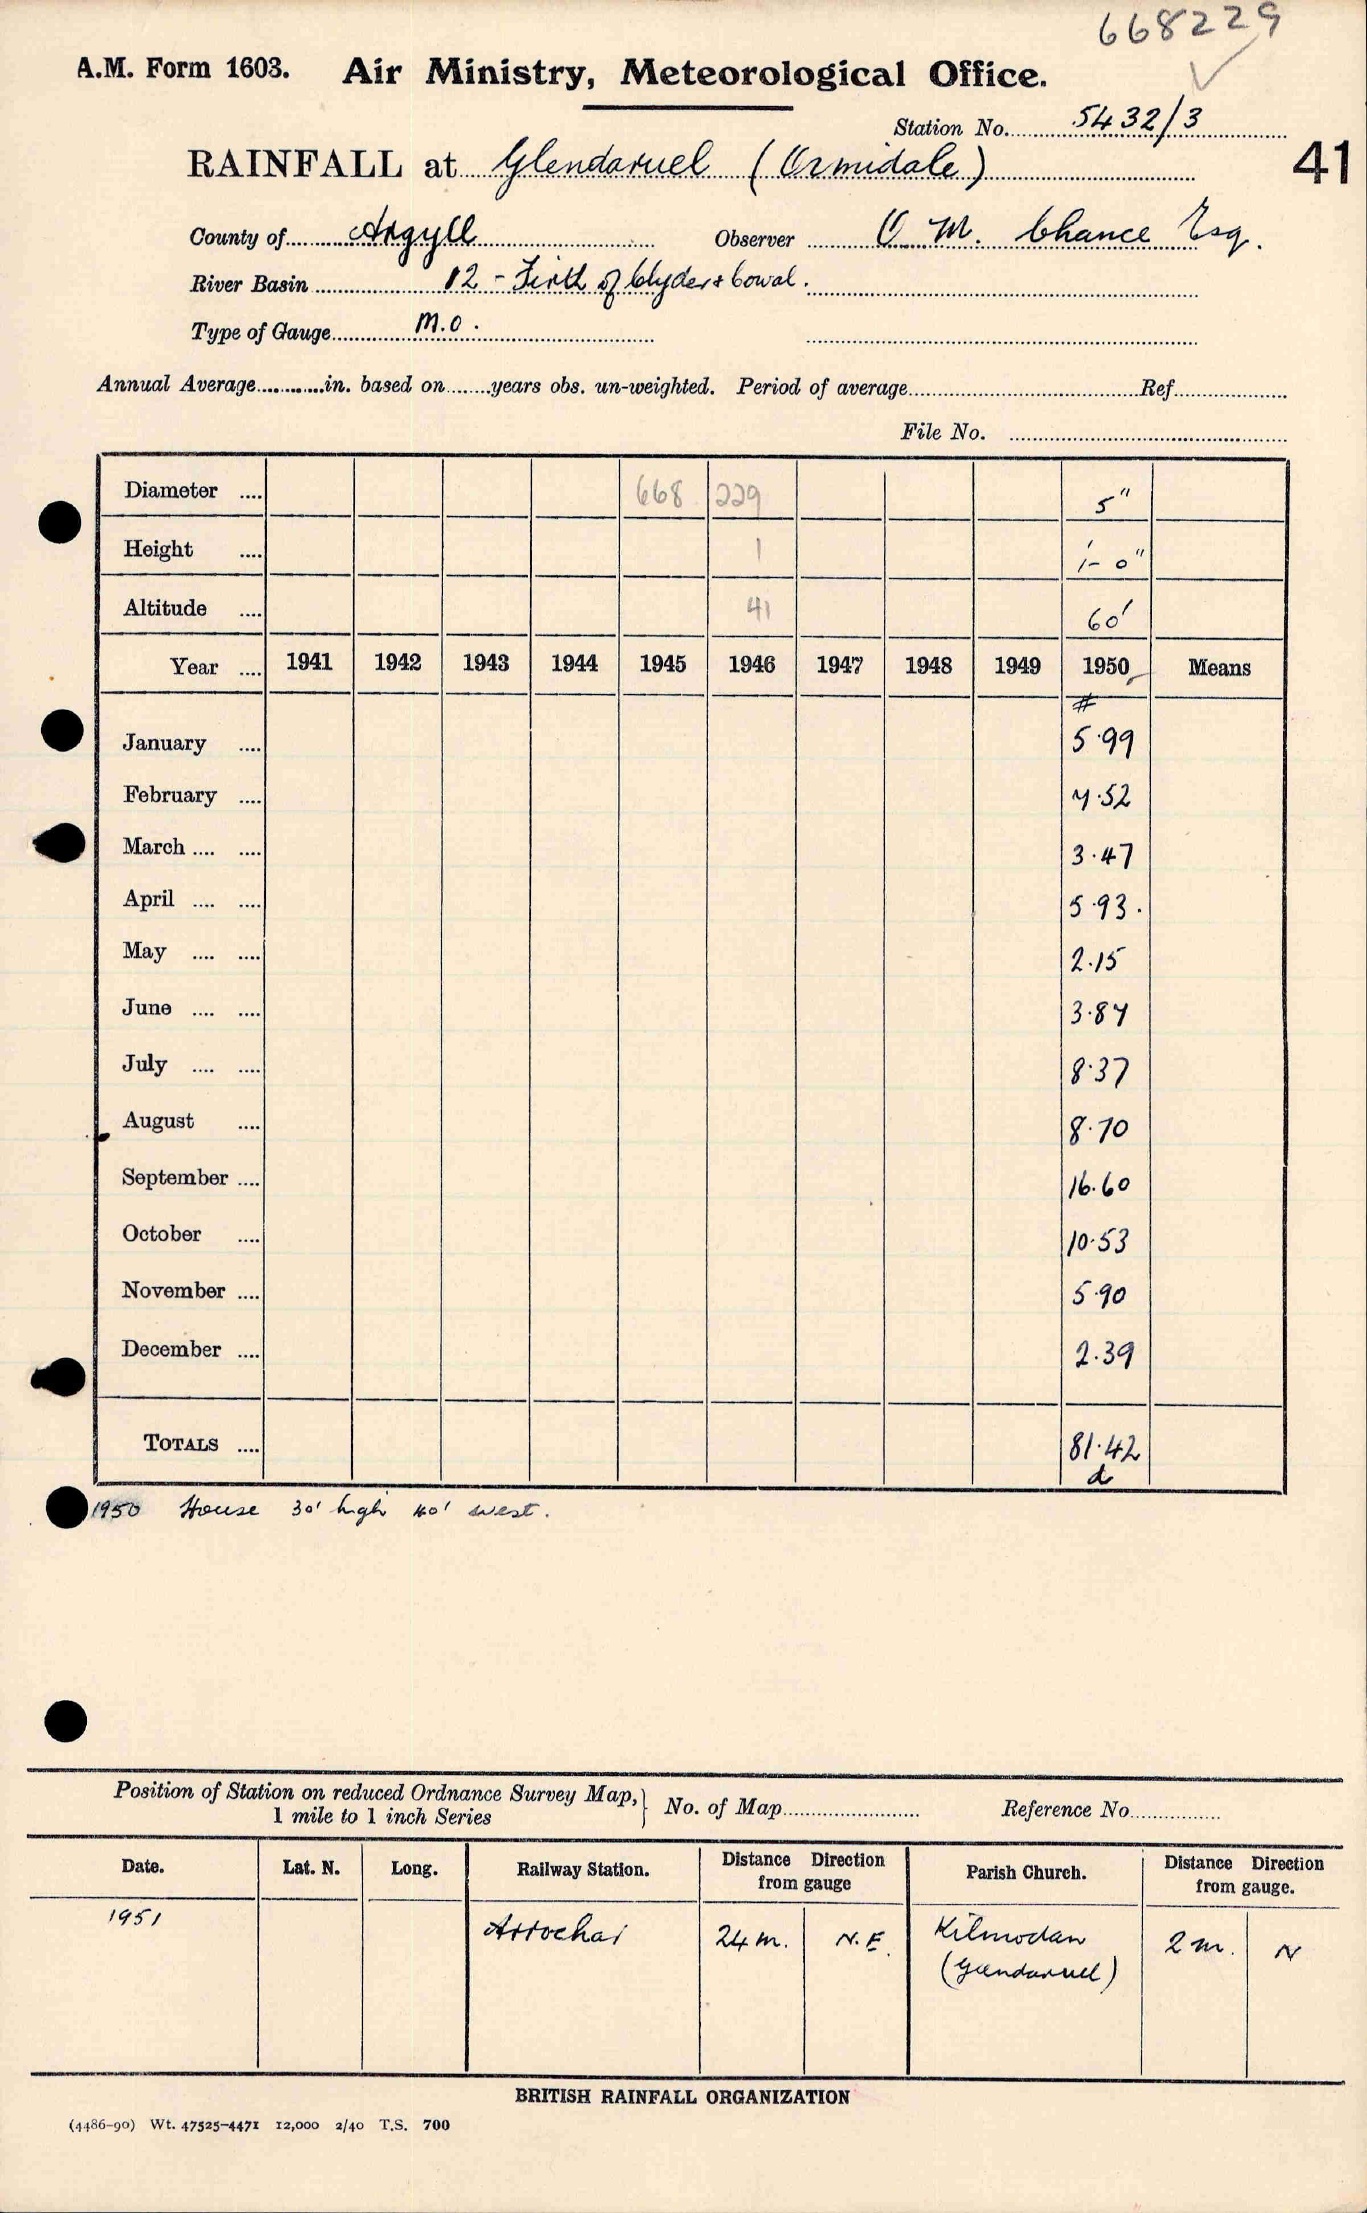 668229
A.M. Form 1603. Air Ministry, Meteorological Office.
Station No. 5432/3
RAINFALL at Glendaruel (Ormidale)
41
County of Argyll Observer O. M. Chance Esq.
River Basin 12 - Firth of Clyde & Cowal.
Type of Gauge M.O.
Annual Average in. based on years obs. un-weighted. Period of average Ref
File No.
Diameter 668 229 5"
Height 1 1'-0"
Altitude 41 60'
Year 1941 1942 1943 1944 1945 1946 1947 1948 1949 1950 Means
#
January 5.99
February 7.52
March 3.47
April 5.93.
May 2.15
June 3.87
July 8.37
August 8.70
September 16.60
October 10.53
November 5.90
December 2.39
TOTALS 81.42
d
1950 House 30' high 40' west.
Position of Station on reduced Ordnance Survey Map, 1 mile to 1 inch Series } No. of Map Reference No.
Date. Lat. N. Long. Railway Station. Distance Direction from gauge Parish Church. Distance Direction from gauge.
1951 Arrochar 24 m. N.E. Kilmodan 2 m. N
(Glendaruel)
BRITISH RAINFALL ORGANIZATION
(4486-90) Wt. 47525-4471 12,000 2/40 T.S. 700